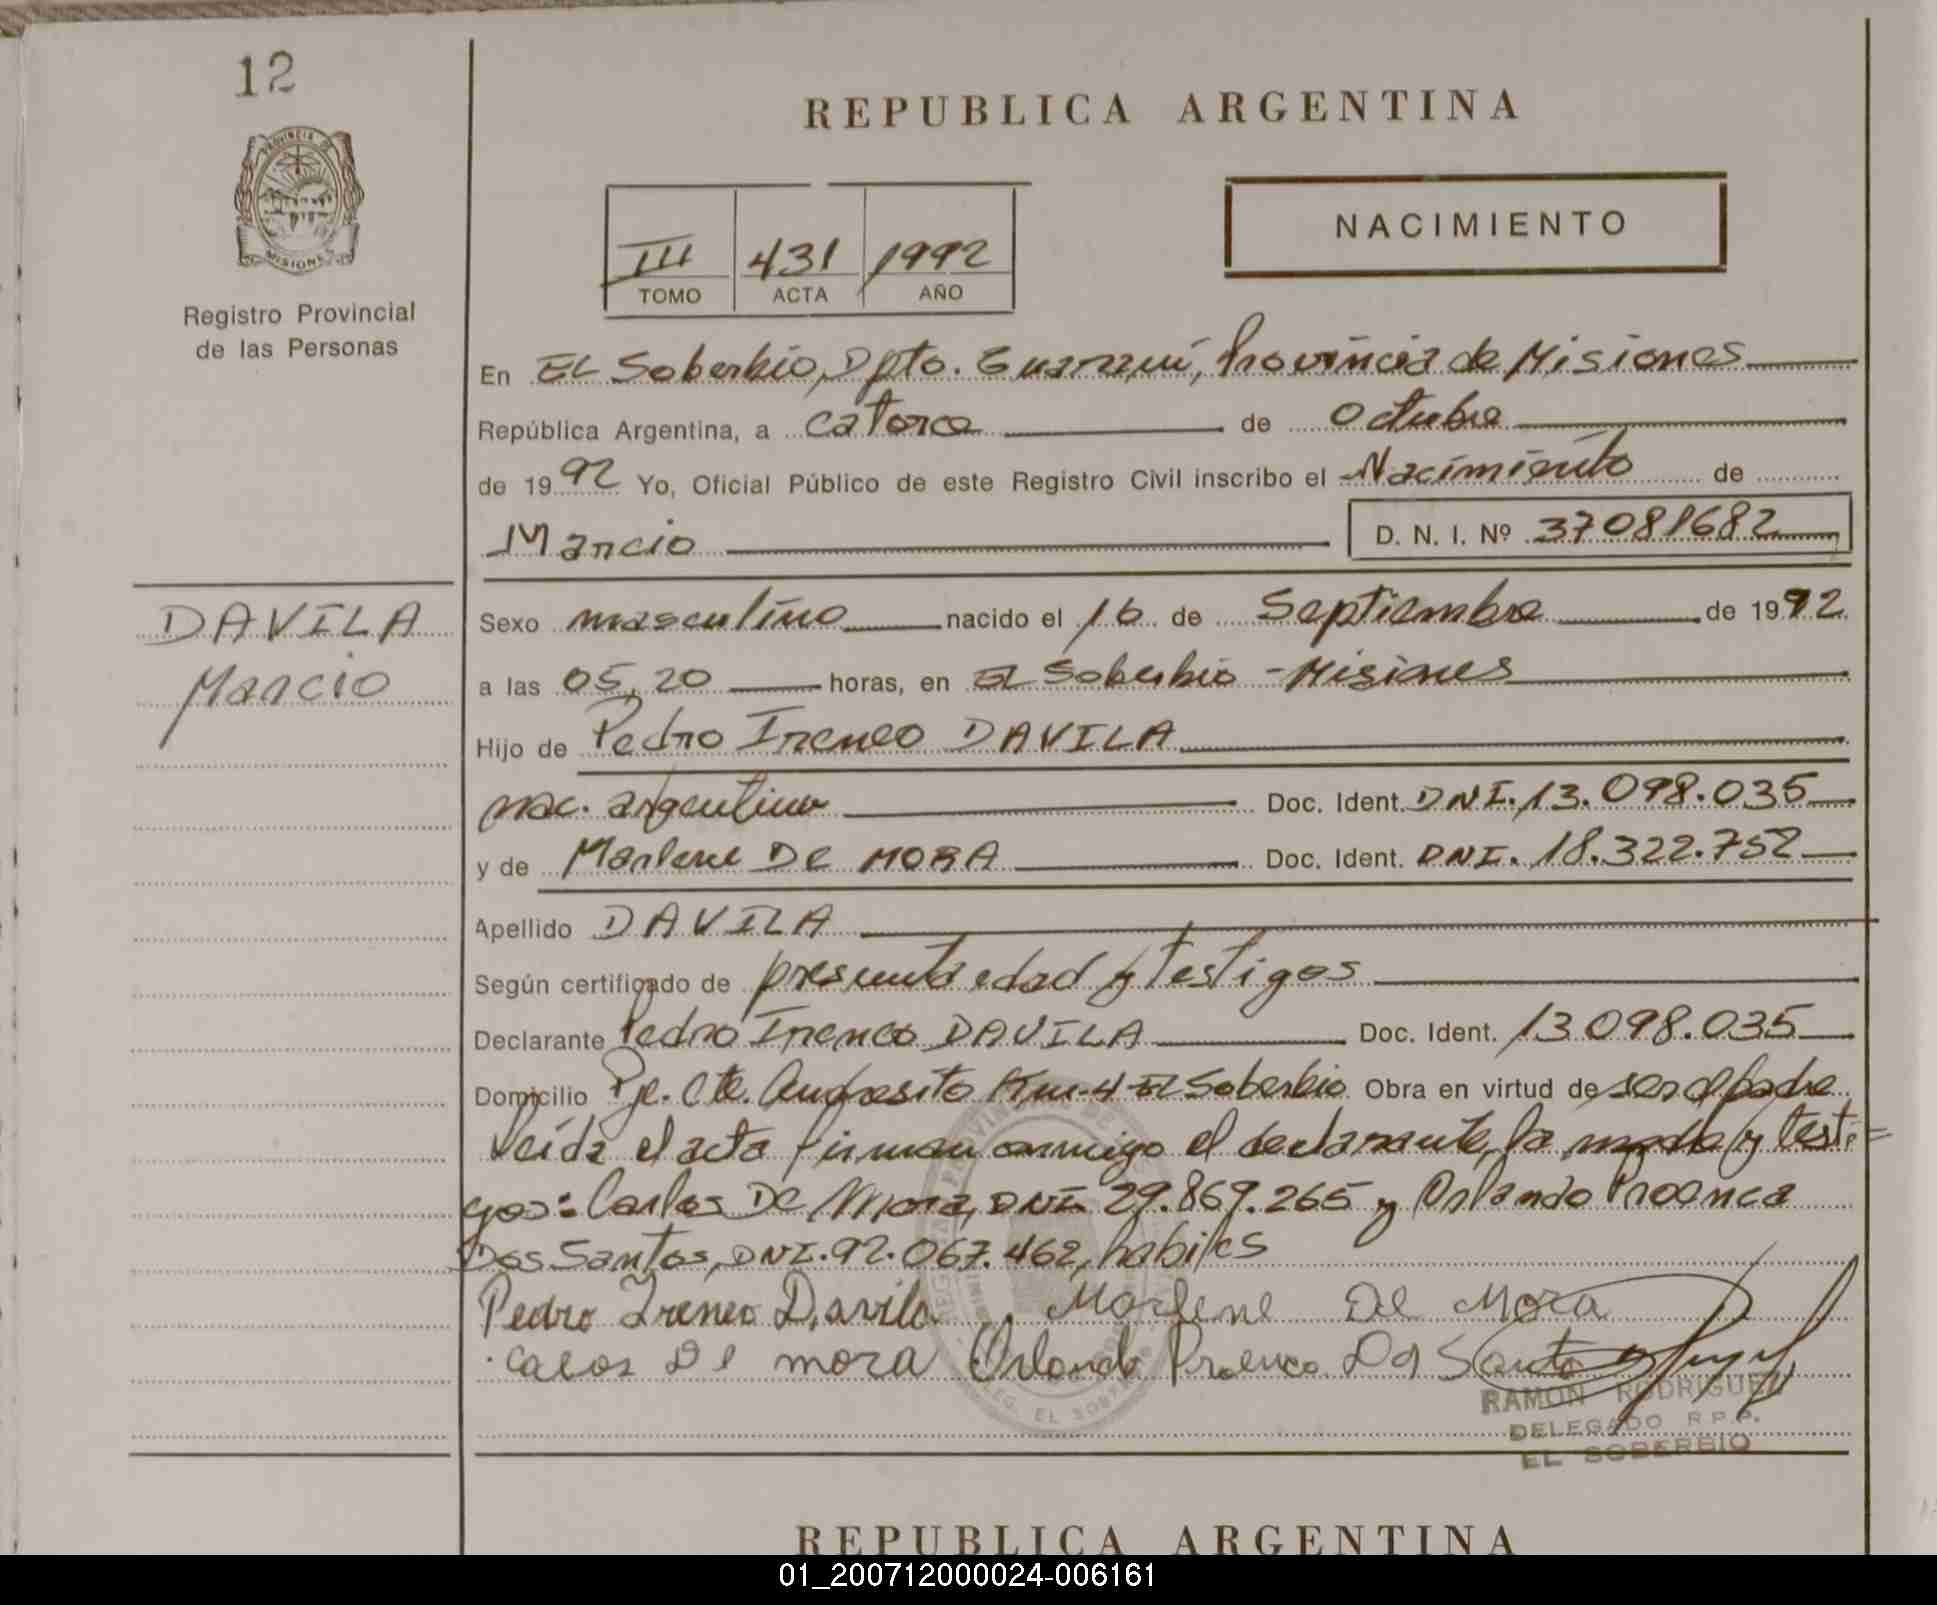 12
REPUBLICA ARGENTINA
PROVINCIA DE
MISIONES
Registro Provincial
de las Personas
III 431 1992
TOMO ACTA AÑO
NACIMIENTO
En EL Soberbio, Dpto. Guaraní, Provincia de Misiones
República Argentina, a catorce de Octubre
de 1992 Yo, Oficial Público de este Registro Civil inscribo el Nacimiento de
Marcio D. N. I. Nº 37081682
DAVILA
Marcio
Sexo masculino nacido el 16 de Septiembre de 1992
a las 05,20 horas, en EL Soberbio - Misiones
Hijo de Pedro Ireneo DAVILA
nac. argentino Doc. Ident. DNI. 13.098.035
y de Marlene DE MORA Doc. Ident. DNI. 18.322.752
Apellido DAVILA
Según certificado de presunta edad y testigos
Declarante Pedro Ireneo DAVILA Doc. Ident. 13.098.035
Domicilio Pje. Cte. Andresito Km-4 EL Soberbio Obra en virtud de ser el padre
Leída el acta firman conmigo el declarante, la madre y testi=
gos: Carlos De Mora, DNI 29.869.265 y Orlando Proenca
Dos Santos, DNI. 92.067.462, habiles
Pedro Ireneo Davila Marlene De Mora
Calos De mora Orlando Proenca Dos Santo
RAMON RODRIGUEZ
DELEGADO R.P.P.
EL SOBERBIO
REPUBLICA ARGENTINA
01_200712000024-006161